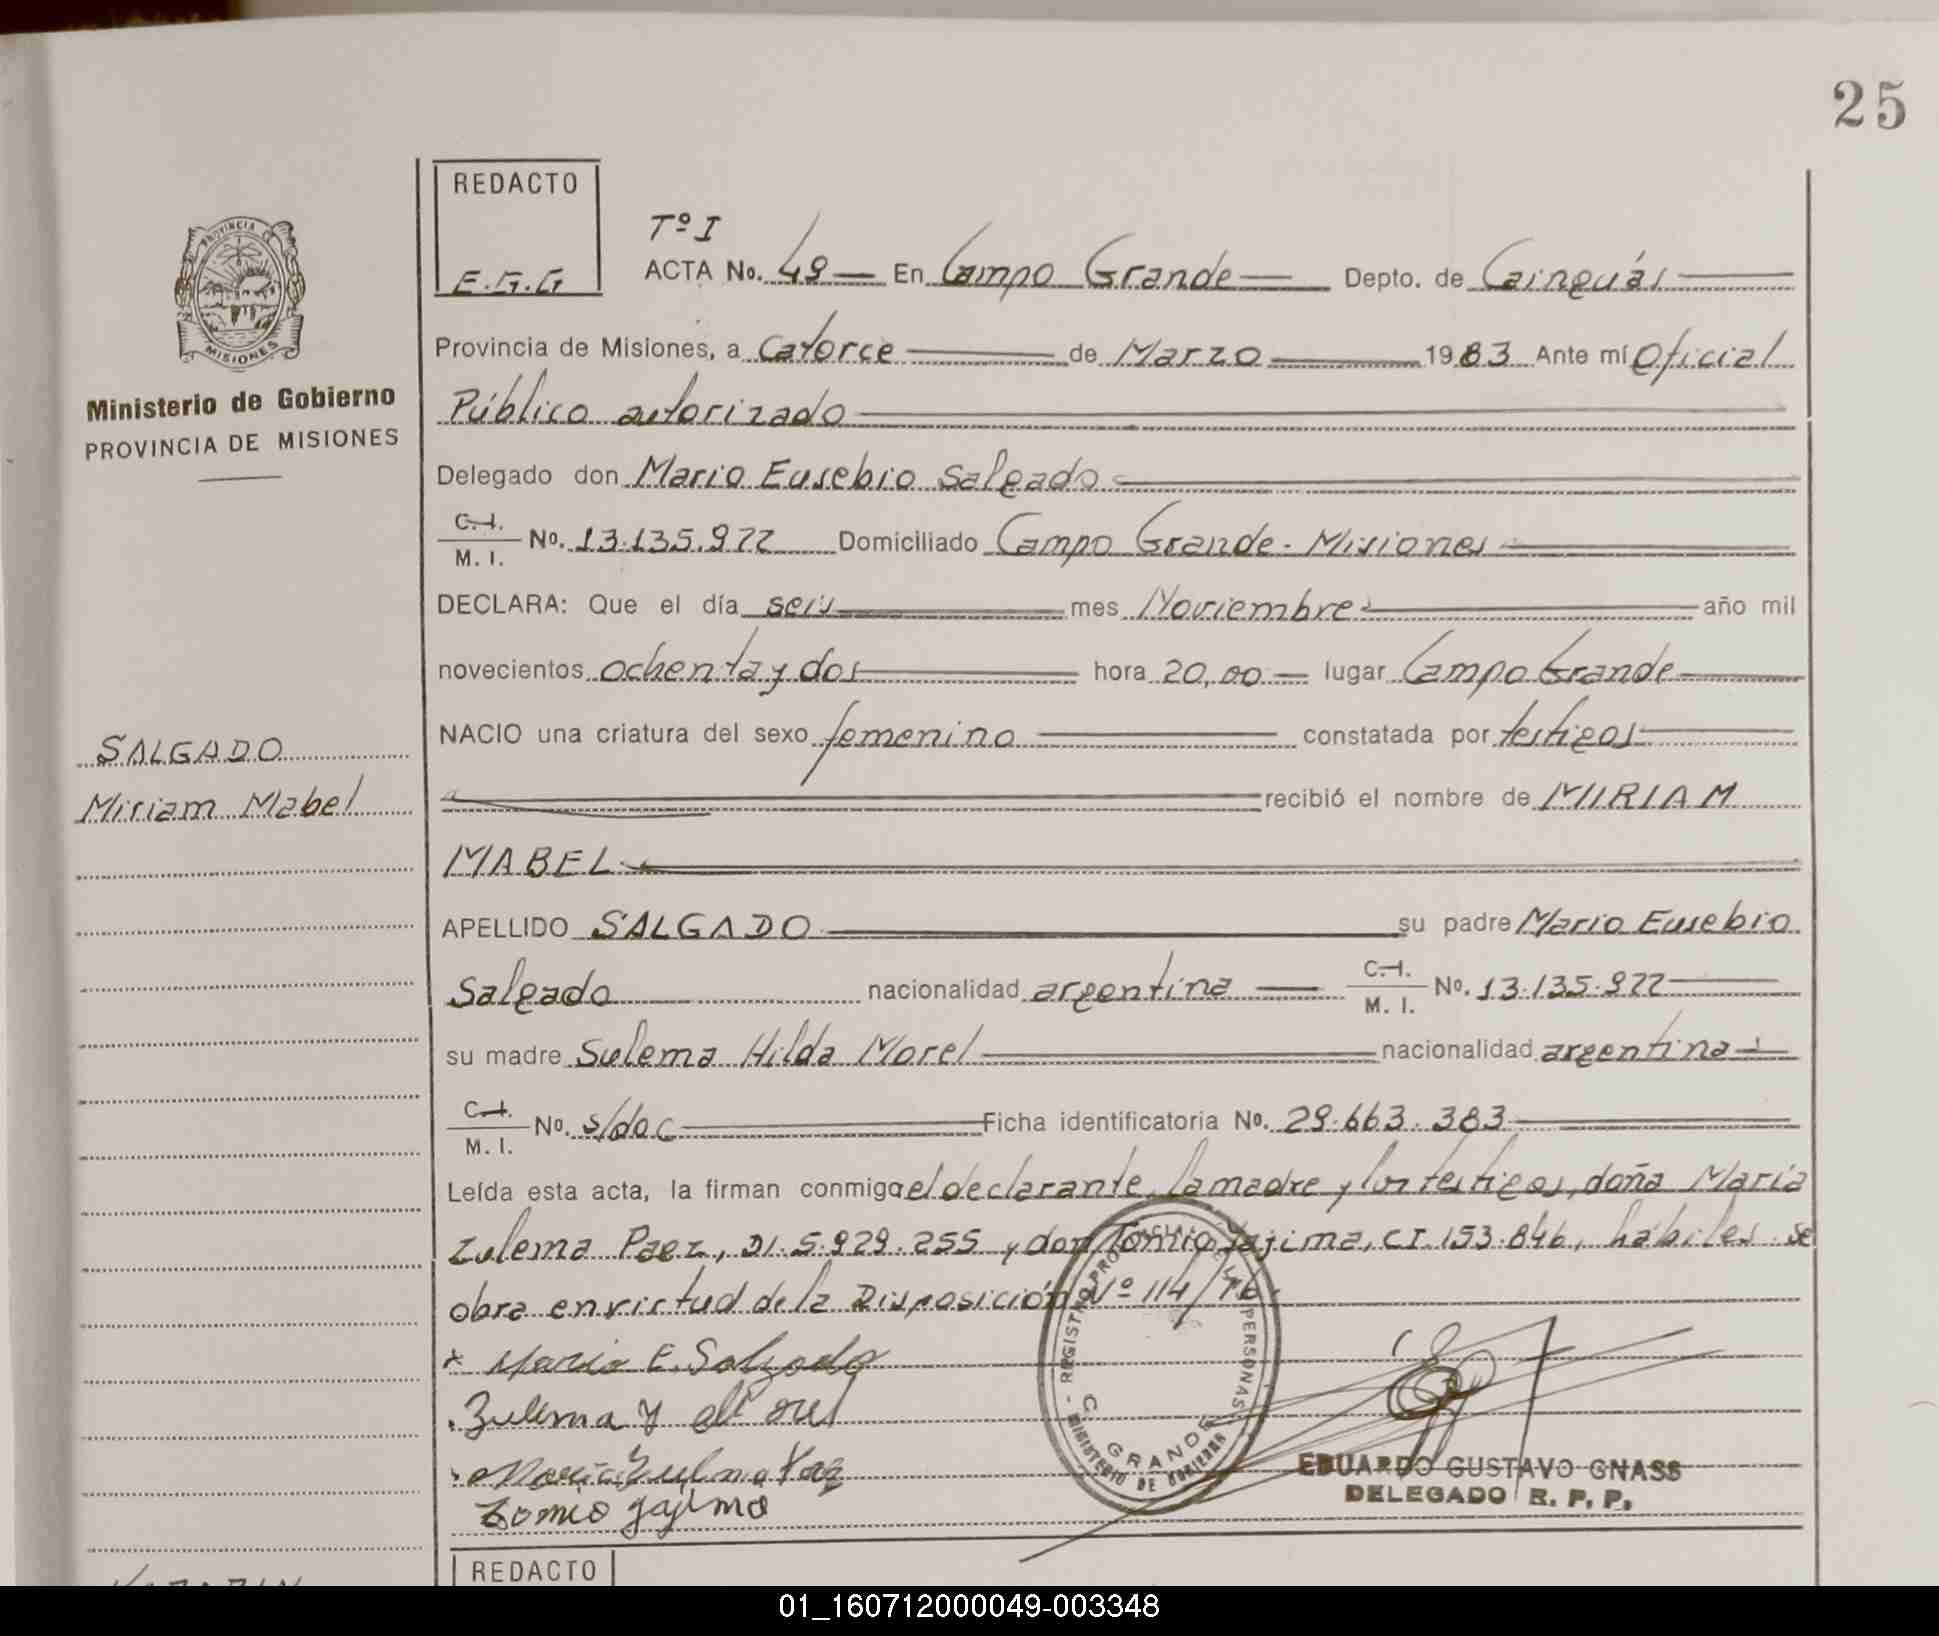 25
REDACTO
E.G.G
Tº I
ACTA No. 49 En Campo Grande Depto. de Cainguás
Provincia de Misiones, a Catorce de Marzo 1983 Ante mí Oficial
Público autorizado
Delegado don Mario Eusebio Salgado
C.I. M. I. No. 13.135.922 Domiciliado Campo Grande - Misiones
DECLARA: Que el día seis mes Noviembre año mil
novecientos ochenta y dos hora 20,00 lugar Campo Grande
NACIO una criatura del sexo femenino constatada por testigos
recibió el nombre de MIRIAM
MABEL
APELLIDO SALGADO su padre Mario Eusebio
Salgado nacionalidad argentina C.I. M. I. No. 13.135.922
su madre Sulema Hilda Morel nacionalidad argentina
C.I. M. I. No. s/doc Ficha identificatoria No. 29.663.383
Leída esta acta, la firman conmigo el declarante, la madre y los testigos, doña María
Zulema Paez, DI. 5.929.255 y don Tomio Jajima, CI. 153.846, hábiles. se
obra en virtud de la Disposición Nº 114/76.
x Mario E. Salgado
Zulema
Maria
Tomio Jajima
REGISTRO PROVINCIAL DE LAS PERSONAS
C. GRANDE
MINISTERIO DE GOBIERNO
EDUARDO GUSTAVO GNASS
DELEGADO R. P. P.
PROVINCIA DE
MISIONES
Ministerio de Gobierno
PROVINCIA DE MISIONES
SALGADO
Miriam Mabel
REDACTO
01_160712000049-003348